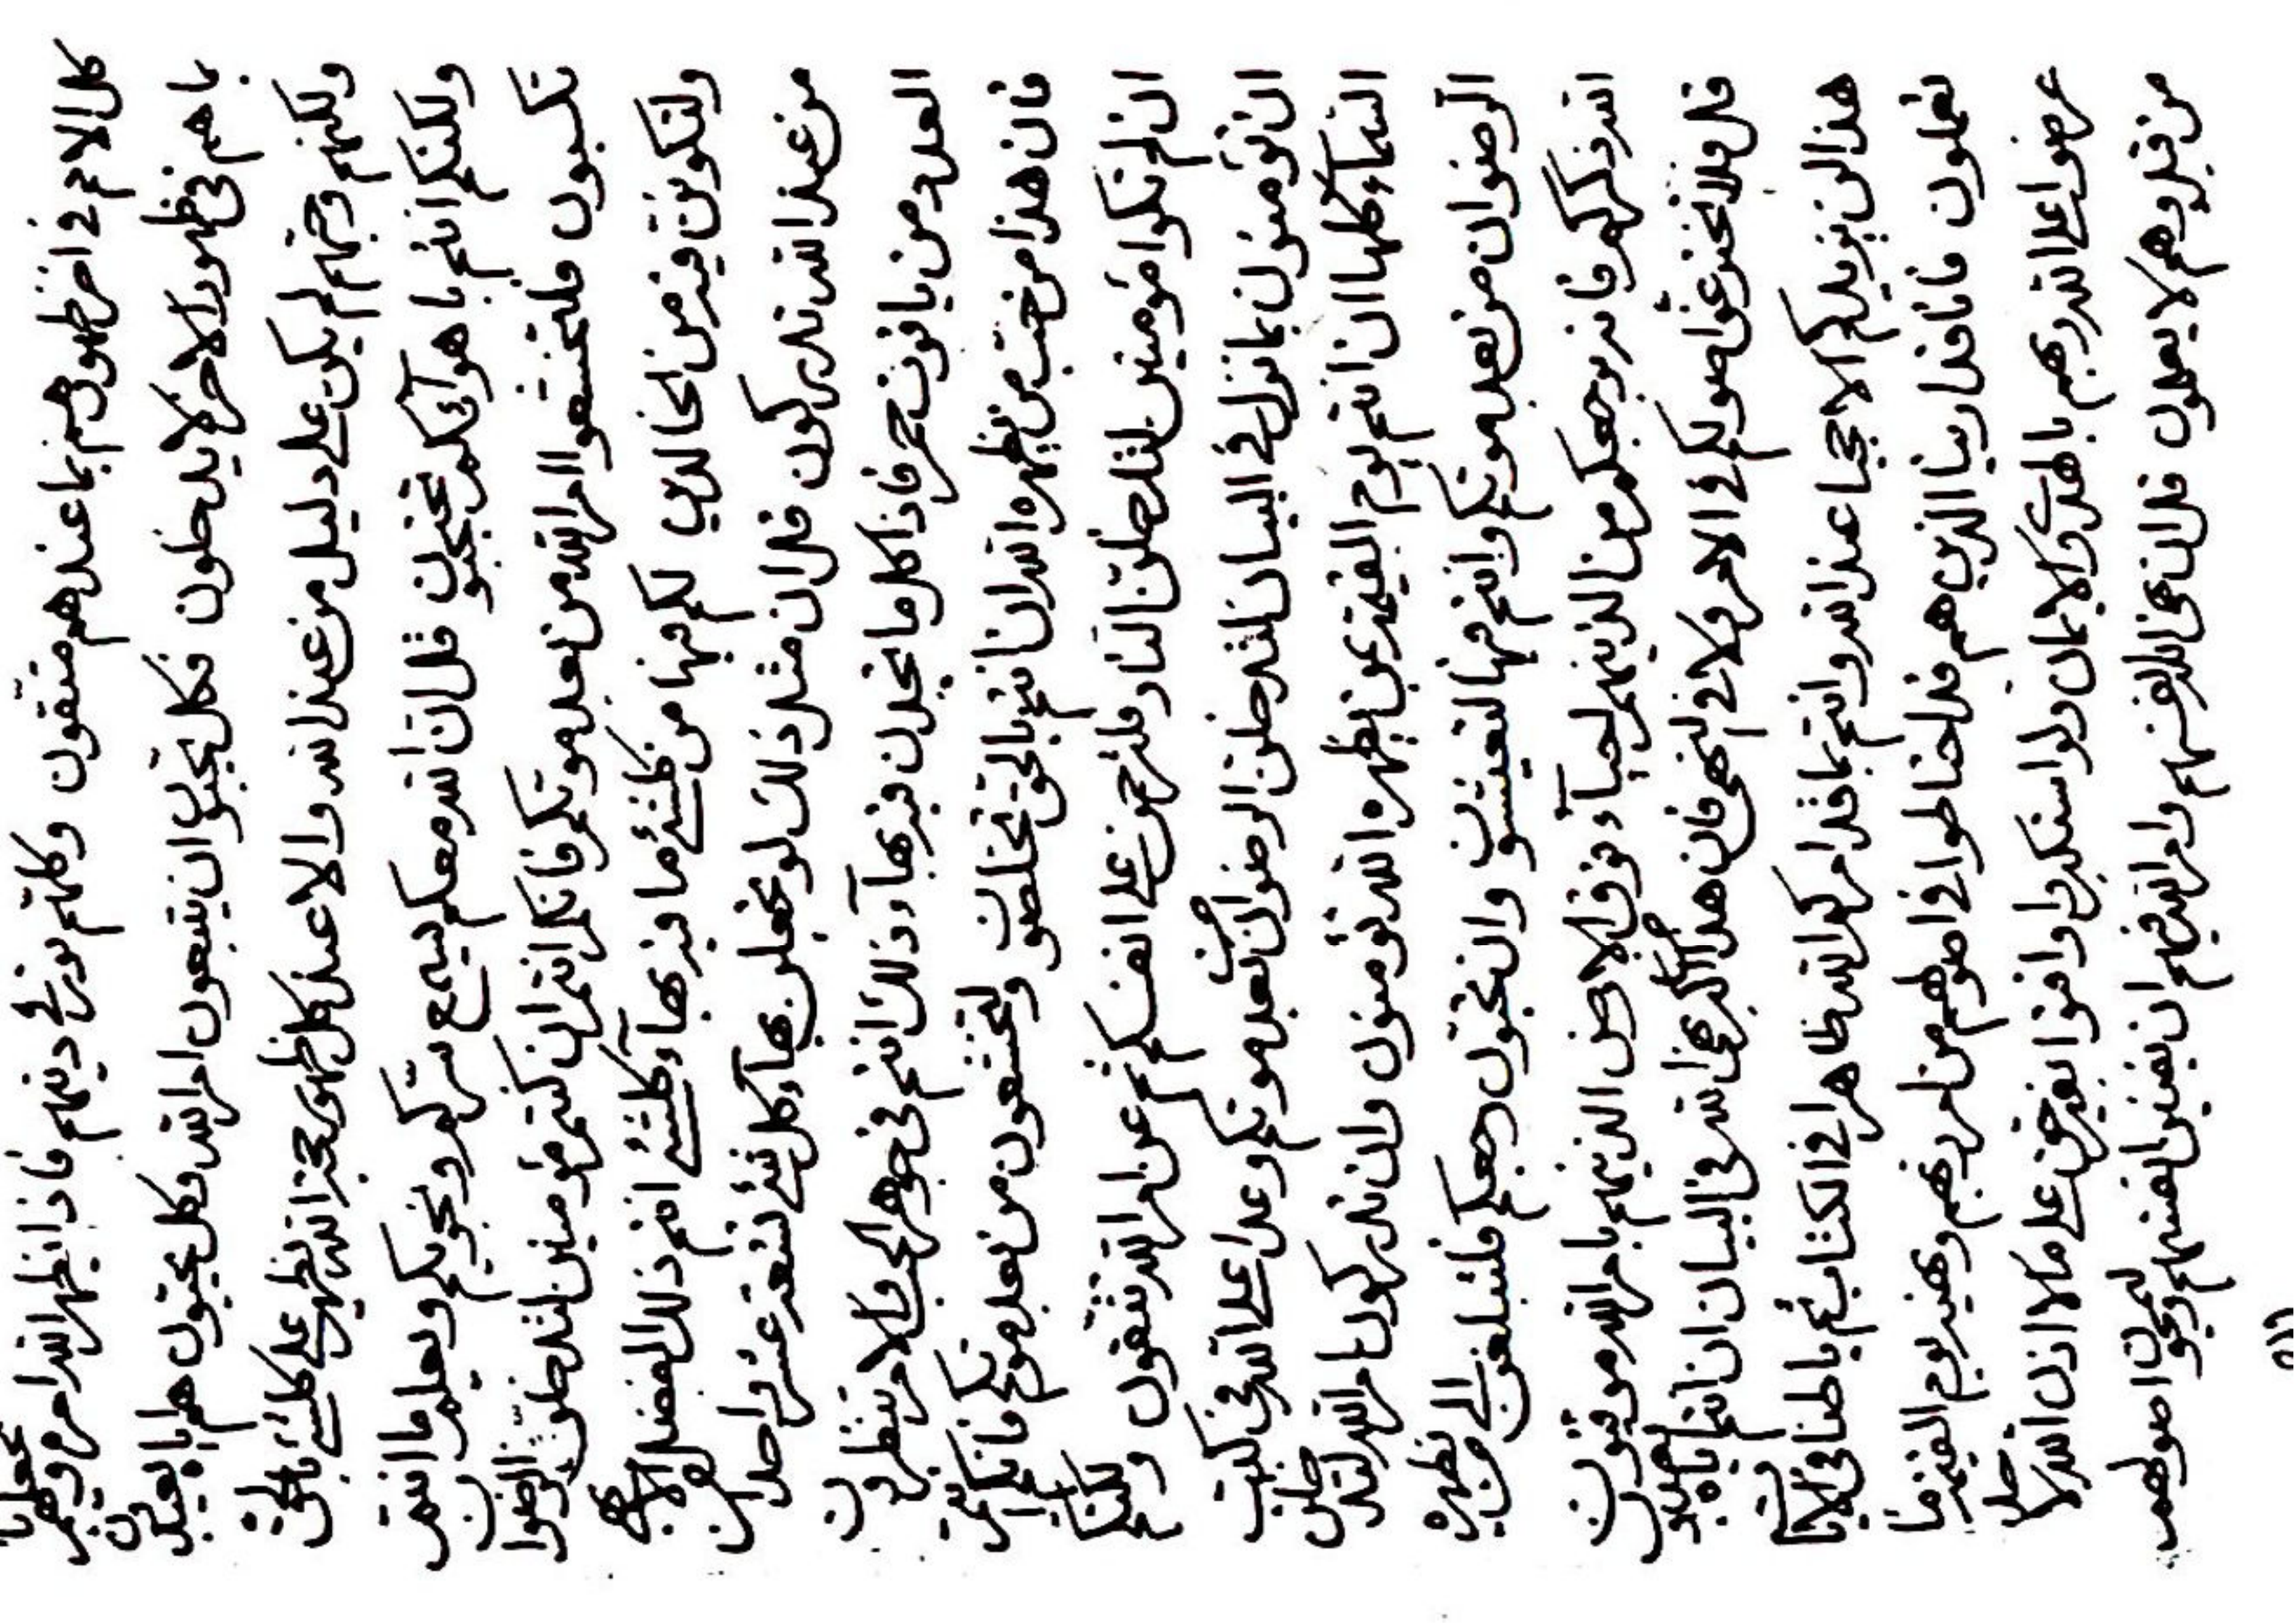 كل الامم في اخر ظهورهم بما عندهم متقون وكلهم نورى دينهم فاذا يظهر الله امره فيهم يجعلنا
ما هم فى ظهور الاخر لا يدخلون فكل يحبون ان يتبعون امر الله وكل يحبون هم اياه يعبدون
ولكنهم وجهتم لم يكن على دليل من عند الله والا عند كل ظهور حجة الله يظهر على كلشئ بالحق
ولكنكم انتم باهوائكم تحتجبون قل ان الله معكم يسمع سركم ونجويكم ويعلم ما انتم
تكسبون فلتخشعوا امر الله من بعد موتكم فانكم انتم ان كنتم مؤمنين لتدخلون الرضوان
ولتكونن فيه من الخالدين لكم فيها من كلشئ ما فيه بهاء كلشئ انتم ذلك الفضل الابهى
من عند الله تدركون قل ان مثل ذلك لو تجعلن بهاء كل شئ تسعة عشر واحدا
العدد من ياقوت حمر فاذا كل ما تجدن فيه بهاء ذلك انتم فى جوهر الحب والامر تنظرون
فان هذا من حب من يظهره الله ان انتم بالحق تخلصون ولتخشعون من بعد موتكم فانكم انتم
ان لم تكونوا مؤمنين لتدخلن النار فلترحمن على انفسكم ثم عن امر الله تتقون ولكنكم
ان تؤمنون بما نزل فى البيان لتدخلن الرضوان من بعد موتكم وعدا على الله فى كتب
السماء كلها ان انتم يوم القيمة بمن يظهره الله تؤمنون وان تدركون امر الله لتدخلن
الرضوان من بعد موتكم وانتم فيها لتعيشون وان تحبون رجعكم فلتبلغن الى من يظهره
الله ذكركم فانه يرجعكم من الذينهم احياء فوق الارض الذينهم بامر الله موقنون
قل فلا تحزنوا اصولكم فى الامر ولا فى النهى فان هذا اكبر نهى الله فى البيان ان انتم اياه تعبدون
هذا لن يزيدكم الا حجبا عند الله وانتم بما قد امركم الله ظاهرا فى الكتاب ثم باطنا فى الاثار
تعملون فانا قد اريناا الذين هم قد احتاطوا فى اصولهم من امر ربهم وهيئ يوم القيمة ما
عرضوا على الله ربهم بالهدى والايمان ولو استكبروا وافتوا بغير حق على ما لا اذن الله لاحد
من قبل وهم لا يعلمون قل ان نهى الله لفيهم وامر الله فيهم ان يفنين انفسهم ويمحون اصولهم